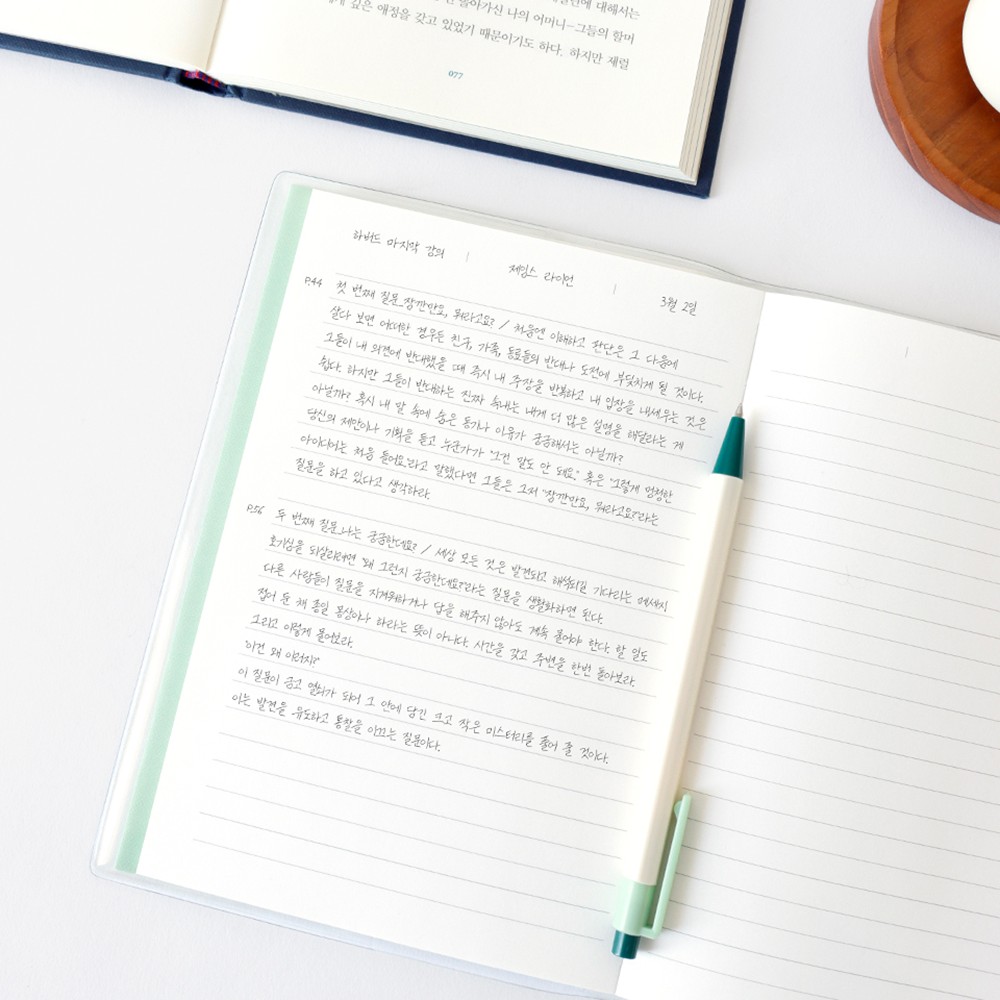 대해서는
돌아가신 나의 어머니–그들의 할머
깊은 애정을 갖고 있었기 때문이기도 하다. 하지만 제럴
077
하버드 마지막 강의 | 제임스 라이언 | 3월 2일
P.44 첫 번째 질문_잠깐만요, 뭐라고요? / 처음엔 이해하고 판단은 그 다음에
살다 보면 어떠한 경우든 친구, 가족, 동료들의 반대나 도전에 부딪치게 될 것이다.
그들이 내 의견에 반대했을 때 즉시 내 주장을 반복하고 내 입장을 내세우는 것은
쉽다. 하지만 그들이 반대하는 진짜 속내는 내게 더 많은 설명을 해달라는 게
아닐까? 혹시 내 말 속에 숨은 동기나 이유가 궁금해서는 아닐까?
당신의 제안이나 기획을 듣고 누군가가 "그건 말도 안 돼요." 혹은 "그렇게 멍청한
아이디어는 처음 들어요"라고 말했다면 그들은 그저 "잠깐만요, 뭐라고요?"라는
질문을 하고 있다고 생각하라.
P.56 두 번째 질문_나는 궁금한데요? / 세상 모든 것은 발견되고 해석되길 기다리는 메세지
호기심을 되살리려면 "왜 그런지 궁금한데요?"라는 질문을 생활화하면 된다.
다른 사람들이 질문을 지겨워하거나 답을 해주지 않아도 계속 물어야 한다. 할 일도
접어 둔 채 종일 몽상이나 하라는 뜻이 아니다. 시간을 갖고 주변을 한번 돌아보라.
그리고 이렇게 물어보라.
"이건 왜 이러지?"
이 질문이 곧고 열쇠가 되어 그 안에 담긴 크고 작은 미스터리를 풀어 줄 것이다.
이는 발견을 유도하고 통찰을 이끄는 질문이다.